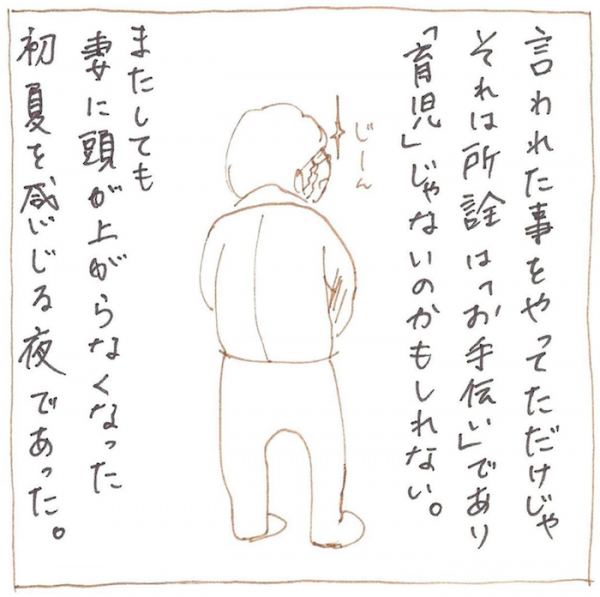 言われた事をやってただけじゃ
それは所詮は「お手伝い」であり
「育児」じゃないのかもしれない。
じーん
またしても
妻に頭が上がらなくなった
初夏を感じる夜であった。